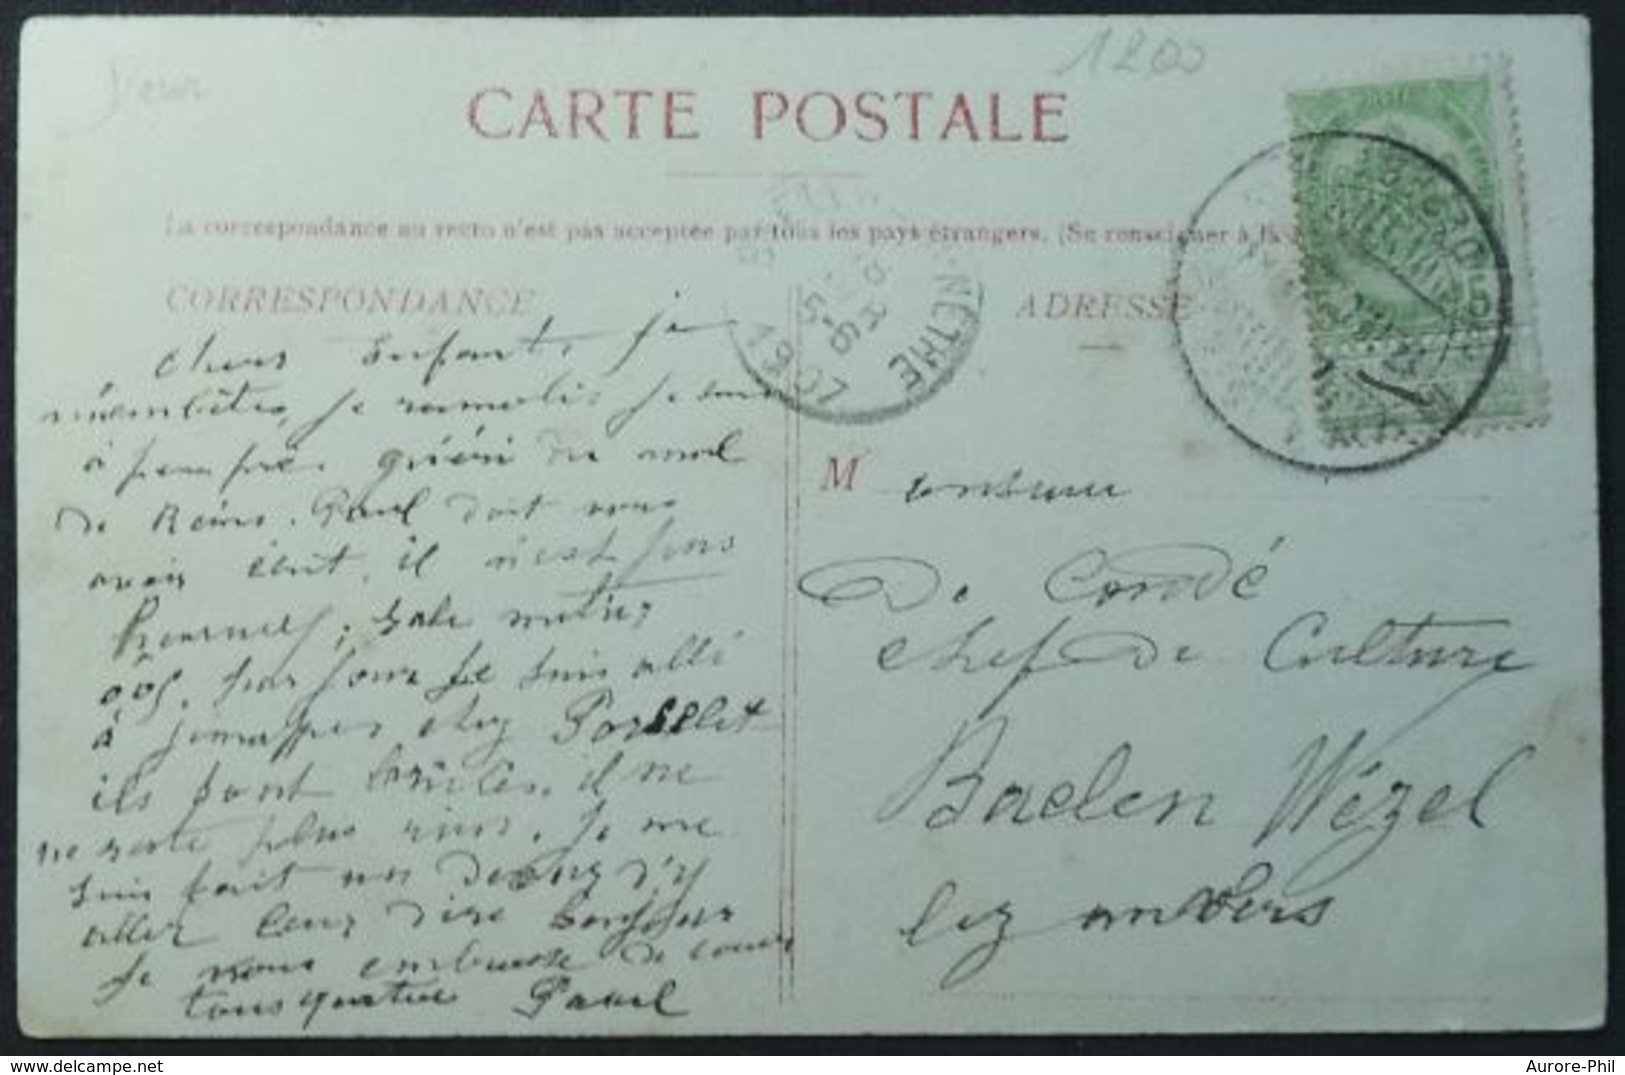 1200
CARTE POSTALE
La correspondance au recto n'est pas acceptée par tous les pays étrangers. (Se renseigner à la
CORRESPONDANCE
ADRESSE
NETHE
5-6
1907
chers Enfants, je
m'embêtes, je ramolis je suis
à peu près guéri du mal
de Reins. Paul doit vous
avoir écrit, il n'est pas
, sale
par jour je suis allé
à jemappes chez Porselet
ils sont , il ne
ne reste plus rien. Je me
suis fait un d'y
aller leur dire bonjour
Je vous embrasse de coeur
tous quatre Paul
Monsieur
De Condé
chef de Culture
Baelen Wézel
lez anvers
Aurore-Phil